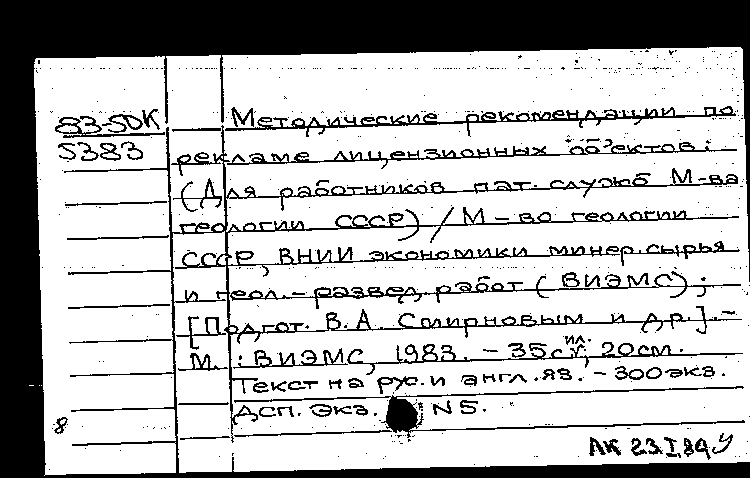 83-5DK Методические рекомендации по
5383 рекламе лицензионных объектов:
(Для работников пат. служб М-ва
геологии СССР) / М-во геологии
СССР, ВНИИ экономики минер. сырья
и геол.-развед. работ (ВИЭМС);
[Подгот. В.А. Смирновым и др.].-
М. : ВИЭМС, 1983. - 35 с., ил.; 20 см.
Текст на рус. и англ. яз. - 300 экз.
ДСП. Экз. N 5.
8
ЛК 23.I.84